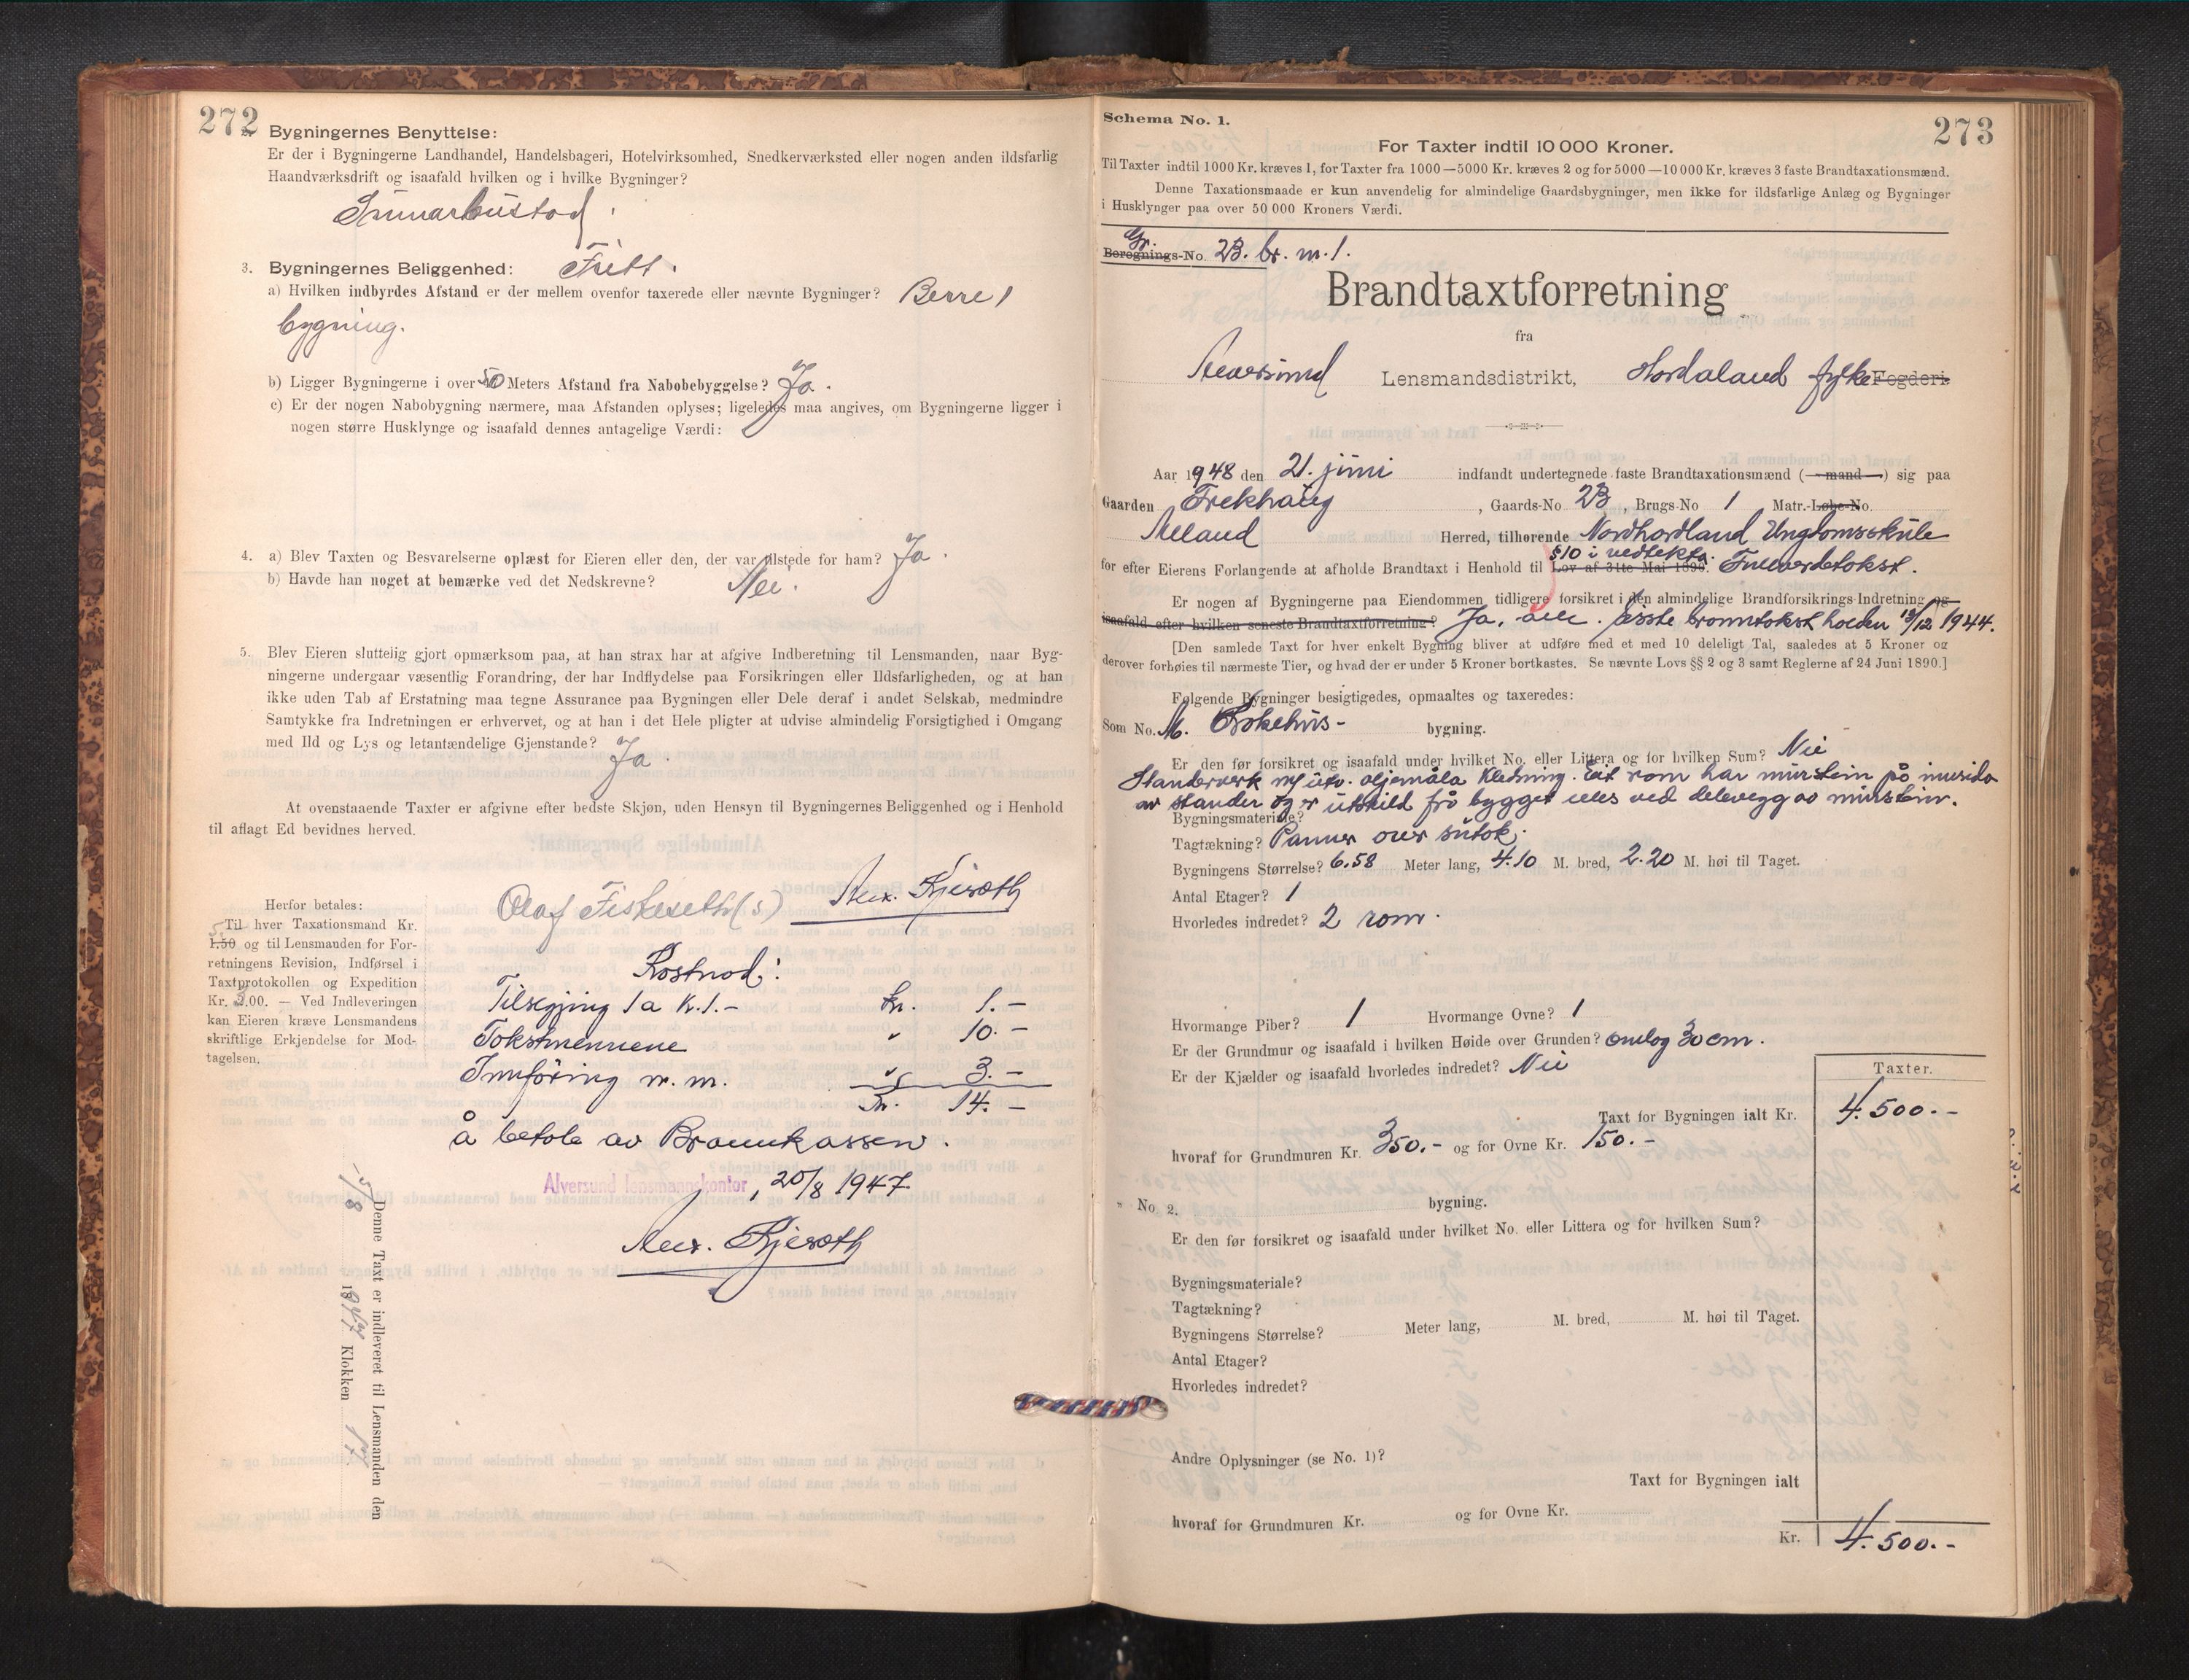 272
Bygningernes Benyttelse:
Er der i Bygningerne Landhandel, Handelsbageri, Hotelvirksomhed, Snedkerværksted eller nogen anden ildsfarlig
Haandværksdrift og isaafald hvilken og i hvilke Bygninger?
Sumarbustad.
3. Bygningernes Beliggenhed: Fritt.
a) Hvilken indbyrdes Afstand er der mellem ovenfor taxerede eller nævnte Bygninger? Berre 1
bygning.
b) Ligger Bygningerne i over 50 Meters Afstand fra Nabobebyggelse? Ja.
c) Er der nogen Nabobygning nærmere, maa Afstanden oplyses; ligeledes maa angives, om Bygningerne ligger i
nogen større Husklynge og isaafald dennes antagelige Værdi:
4. a) Blev Taxten og Besvarelserne oplæst for Eieren eller den, der var tilstede for ham? Ja.
b) Havde han noget at bemærke ved det Nedskrevne? Nei.
5. Blev Eieren sluttelig gjort opmærksom paa, at han strax har at afgive Indberetning til Lensmanden, naar Byg-
ningerne undergaar væsentlig Forandring, der har Indflydelse paa Forsikringen eller Ildsfarligheden, og at han
ikke uden Tab af Erstatning maa tegne Assurance paa Bygningen eller Dele deraf i andet Selskab, medmindre
Samtykke fra Indretningen er erhvervet, og at han i det Hele pligter at udvise almindelig Forsigtighed i Omgang
med Ild og Lys og letantændelige Gjenstande? Ja.
At ovenstaaende Taxter er afgivne efter bedste Skjøn, uden Hensyn til Bygningernes Beliggenhed og i Henhold
til aflagt Ed bevidnes herved.
Olaf Fiskeseth (s) Alex. Kjeseth
Herfor betales:
Til hver Taxationsmand Kr.
5. 1.50 og til Lensmanden for For-
retningens Revision, Indførsel i
Taxtprotokollen og Expedition
Kr. 3.00. — Ved Indleveringen
kan Eieren kræve Lensmandens
skriftlige Erkjendelse for Mod-
tagelsen.
Kostnad:
Tilsejing 1 a kr. 1.- kr. 1.-
Takstmennene " 10.-
Innføring m. m. " 3.-
Kr. 14.-
å betale av Brannkassen.
Alversund lensmannskontor, 20/8 1947
Alex. Kjeseth
Denne Taxt er indleveret til Lensmanden den
15/8 1947 Klokken 17
273
Schema No. 1.
For Taxter indtil 10 000 Kroner.
Til Taxter indtil 1000 Kr. kræves 1, for Taxter fra 1000—5000 Kr. kræves 2 og for 5000—10 000 Kr. kræves 3 faste Brandtaxationsmænd.
Denne Taxationsmaade er kun anvendelig for almindelige Gaardsbygninger, men ikke for ildsfarlige Anlæg og Bygninger
i Husklynger paa over 50 000 Kroners Værdi.
Gr.
Beregnings-No. 23. br. nr. 1.
Brandtaxtforretning
fra
Alversund Lensmandsdistrikt, Hordaland fylke Fogderi.
Aar 1948 den 21. juni indfandt undertegnede faste Brandtaxationsmænd (—mand—) sig paa
Gaarden Frekhaug, Gaards-No 23, Brugs-No 1 Matr.-Løbe-No.
Meland Herred, tilhørende Nordhordland Ungdomsskule
§10 i vedtekta.
for efter Eierens Forlangende at afholde Brandtaxt i Henhold til Lov af 31te Mai 1890. Fullverdetakst.
Er nogen af Bygningerne paa Eiendommen tidligere forsikret i den almindelige Brandforsikrings-Indretning og
isaafald efter hvilken seneste Brandtaxtforretning? Ja, alle. Siste branntakst halden 13/12 1944.
[Den samlede Taxt for hver enkelt Bygning bliver at udføre med et med 10 deleligt Tal, saaledes at 5 Kroner og
derover forhøies til nærmeste Tier, og hvad der er under 5 Kroner bortkastes. Se nævnte Lovs §§ 2 og 3 samt Reglerne af 24 Juni 1890.]
Følgende Bygninger besigtigedes, opmaaltes og taxeredes:
Som No. M. Kokehus- bygning.
Er den før forsikret og isaafald under hvilket No. eller Littera og for hvilken Sum? Nei
Standerverk m/ utv. oljemåla kledning. Eit rom har murstein på innsida
av stander og er utskild frå bygget elles ved delevegg av murstein.
Bygningsmateriale?
Tagtækning? Panner over sutak.
Bygningens Størrelse? 6.58 Meter lang, 4.10 M. bred, 2.20 M. høi til Taget.
Antal Etager? 1
Hvorledes indredet? 2 rom.
Hvormange Piber? 1 Hvormange Ovne? 1
Er der Grundmur og isaafald i hvilken Høide over Grunden? omlag 30 cm.
Er der Kjælder og isaafald hvorledes indredet? Nei
Taxter.
Taxt for Bygningen ialt Kr. 4.500.-
hvoraf for Grundmuren Kr. 350.- og for Ovne Kr. 150.-
" No. 2. bygning.
Er den før forsikret og isaafald under hvilket No. eller Littera og for hvilken Sum?
Bygningsmateriale?
Tagtækning?
Bygningens Størrelse? Meter lang, M. bred, M. høi til Taget.
Antal Etager?
Hvorledes indredet?
Andre Oplysninger (se No. 1)?
Taxt for Bygningen ialt
hvoraf for Grundmuren Kr. og for Ovne Kr.
Kr. 4.500.-